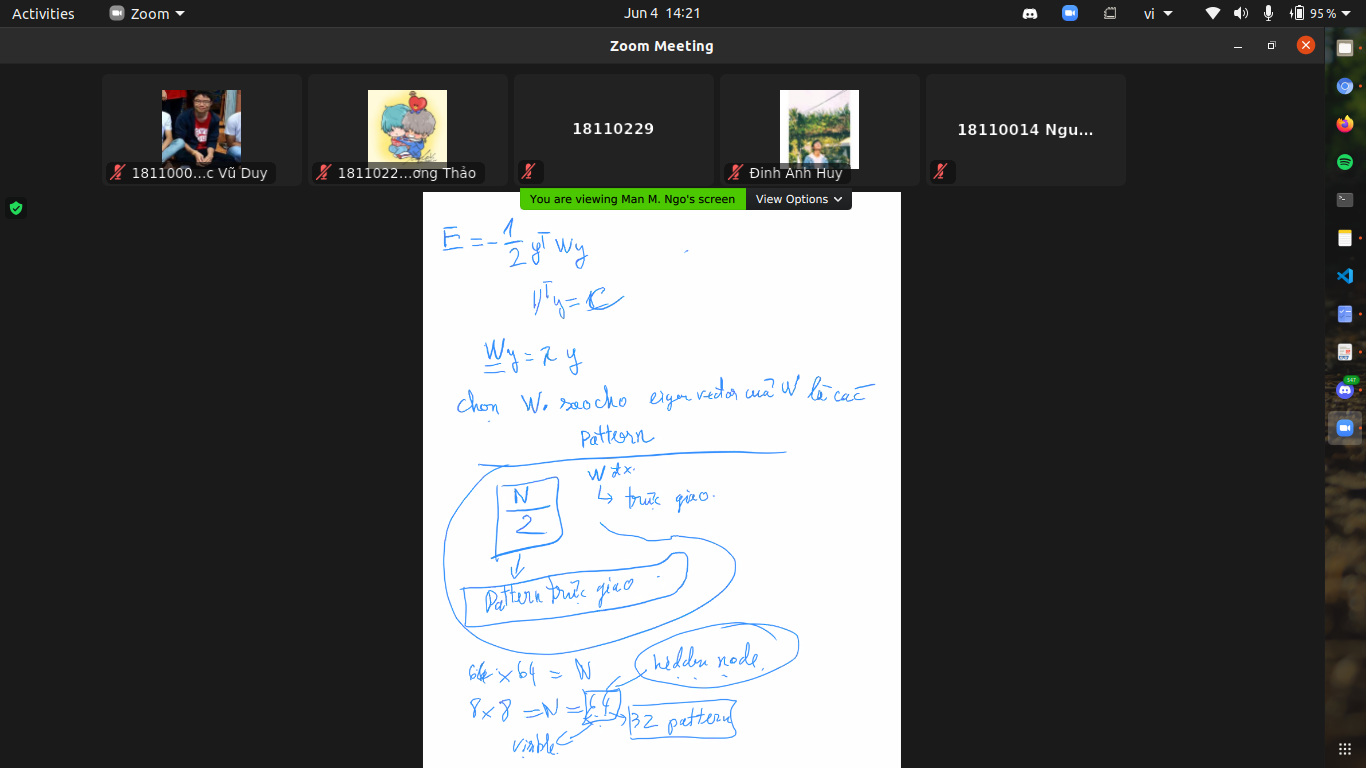 Activities Zoom Jun 4 14:21 vi 95%
Zoom Meeting
1811000...c Vũ Duy
1811022...ơng Thảo
18110229
Đinh Anh Huy
18110014 Ngu...
You are viewing Man M. Ngo's screen View Options
E = -1/2 yᵀWy
1ᵀy = C
Wy = λ y
chọn W. sao cho eigen vector của W là các
Pattern
W đx.
↳ trực giao.
N/2
Pattern trực giao
64 x 64 = N
hidden node.
8 x 8 = N = 64 → 32 pattern
visible
547